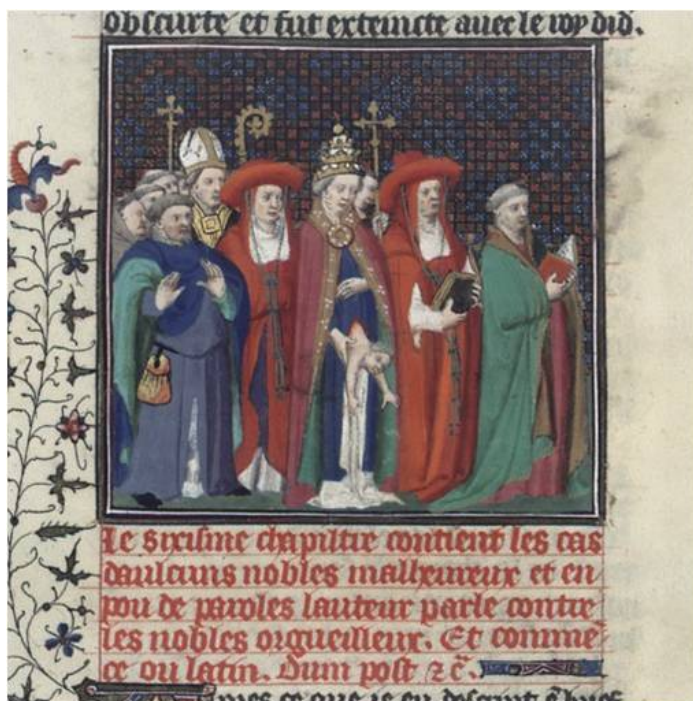 obscurte et fut exteincte auec le roy did.
Le sixisme chapiltre contient les cas
daulcuns nobles malheureux et en
pou de paroles lauteur parle contre
les nobles orgueilleux. Et comme
ce ou latin. Dum post ⁊ c̃.
ce que ie eu